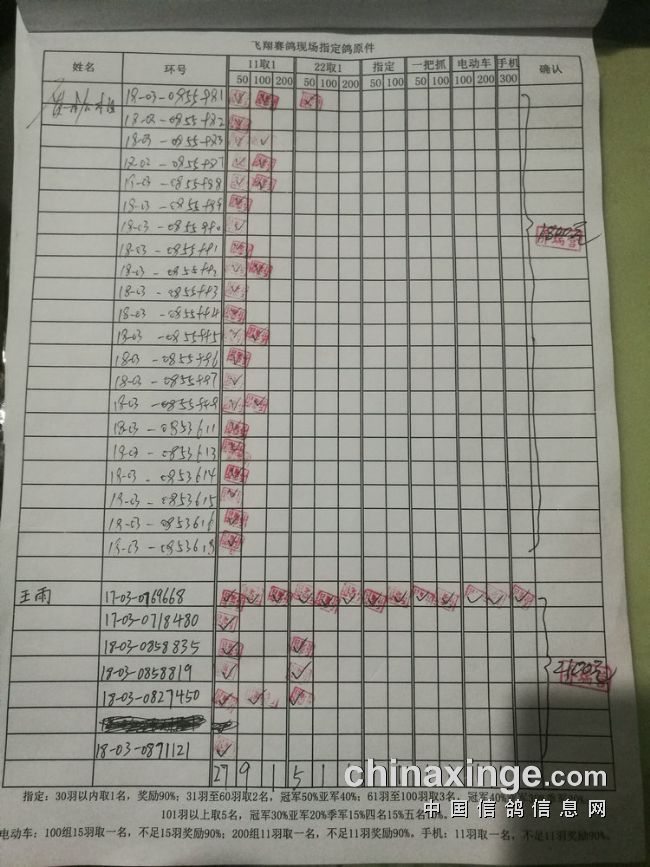 飞翔赛鸽现场指定鸽原件
姓名 环号 11取1 22取1 指定 一把抓 电动车 手机 确认
50 100 200 50 100 200 50 100 50 100 100 200 300
18-03-0855481
18-03-0855482
18-03-0855483
18-03-0855487
18-03-0855488
18-03-0855489
18-03-0855490
18-03-0855491
18-03
18-03-0855493
18-03-0855494
18-03-0855495
18-03-0855496
18-03-0855497
18-03-0855499
18-03-0853611
18-03-0853613
18-03-0853614
18-03-0853615
18-03-0853616
18-03-0853618
王雨 17-03-0769668
17-03-0718480
18-03-0858835
18-03-0858819
18-03-0827450
18-03-0891121
27 9 1 5 1
指定：30羽以内取1名，奖励90%；31羽至60羽取2名，冠军50%亚军40%；61羽至100羽取3名，冠军40%
101羽以上取5名，冠军30%亚军20%季军15%四名15%五名10%。
电动车：100组15羽取一名，不足15羽奖励90%；200组11羽取一名，不足11羽奖励90%。手机：11羽取一名，不足11羽奖励90%。
chinaxinge.com
中国信鸽信息网